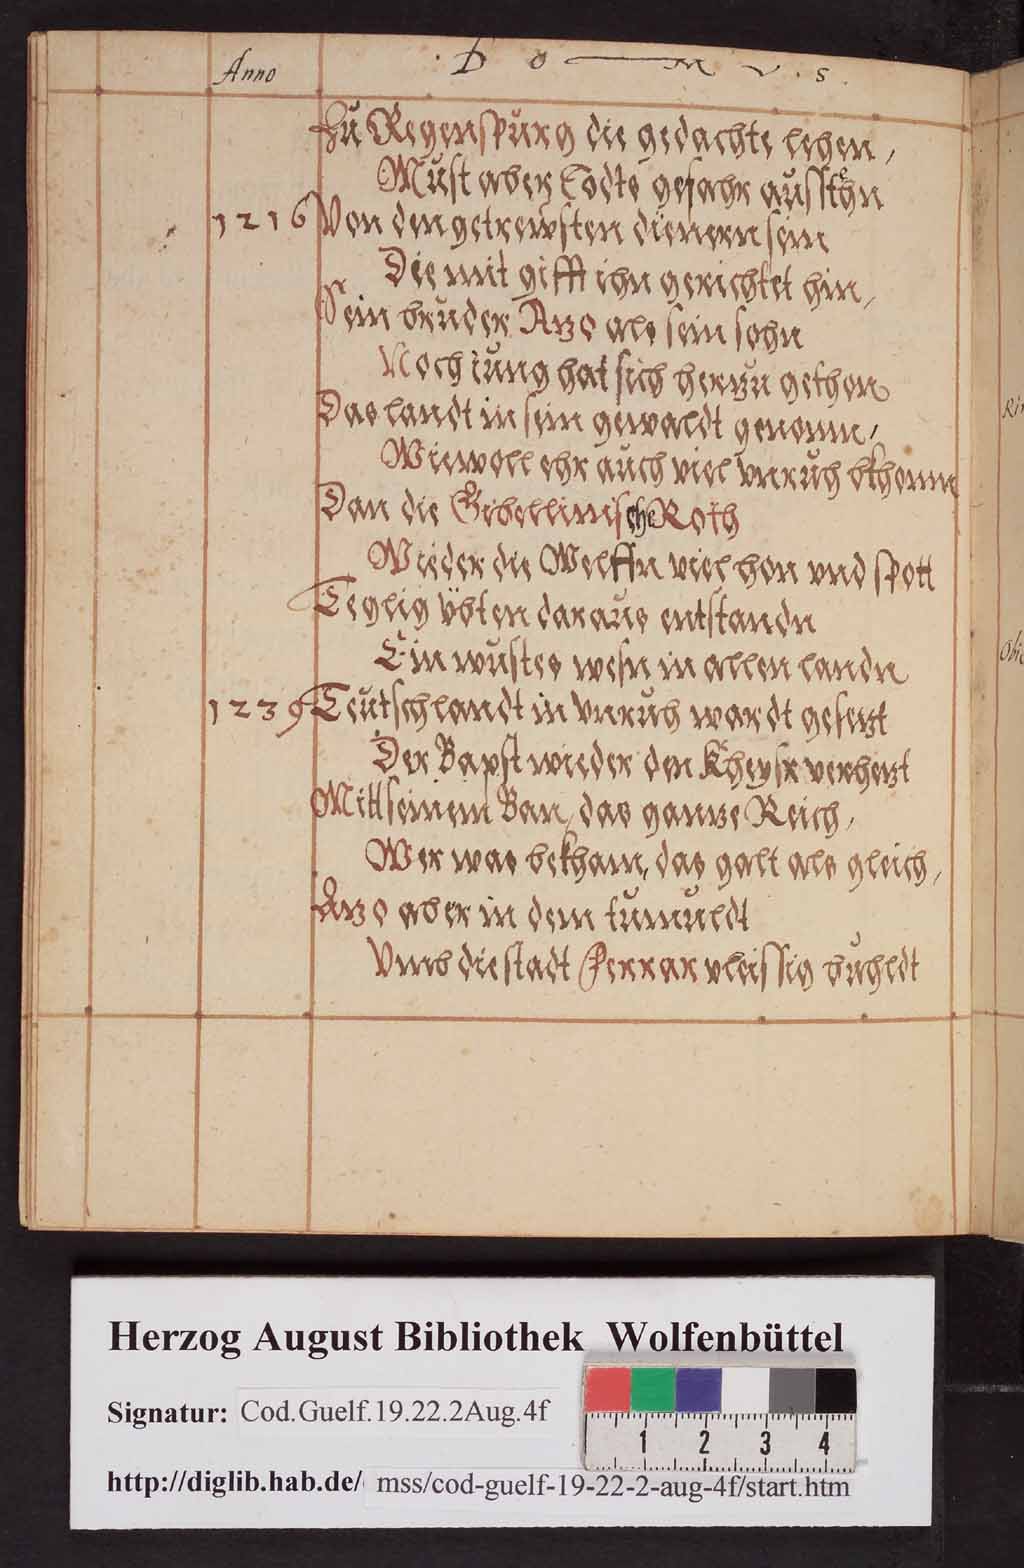 Anno D O M V S.
Zu Regenspurg die gedachte lehen,
Must aber Todts gefahr ausstehn
1216 Von den getrewsten dienern sein
Die mit gifft ihn gerichtet hin,
Sein bruder Azo als sein sohn
Noch iung hat sich herzu gethon
Das landt in sein gewaldt genomn,
Wiewoll ehr auch viel vnruh bkhomn
Dan die Gibellinische Roth
Wieder die Welffn viel hon vnd spott
Teglig übten daraus entstandn
Ein wustes wesn in allen landn
1239 Teutschlandt in vnruh wardt gesetzt
Der Bapst wieder den Kheysr verhetzt
Mitt seinem Ban, das gantze Reich,
Wer was bekham, das galt als gleich,
Azo aber in dem tumuldt
Vmb die stadt Ferrar vleissig buhldt
Herzog August Bibliothek Wolfenbüttel
Signatur: Cod.Guelf.19.22.2Aug.4f
1 2 3 4
http://diglib.hab.de/ mss/cod-guelf-19-22-2-aug-4f/start.htm